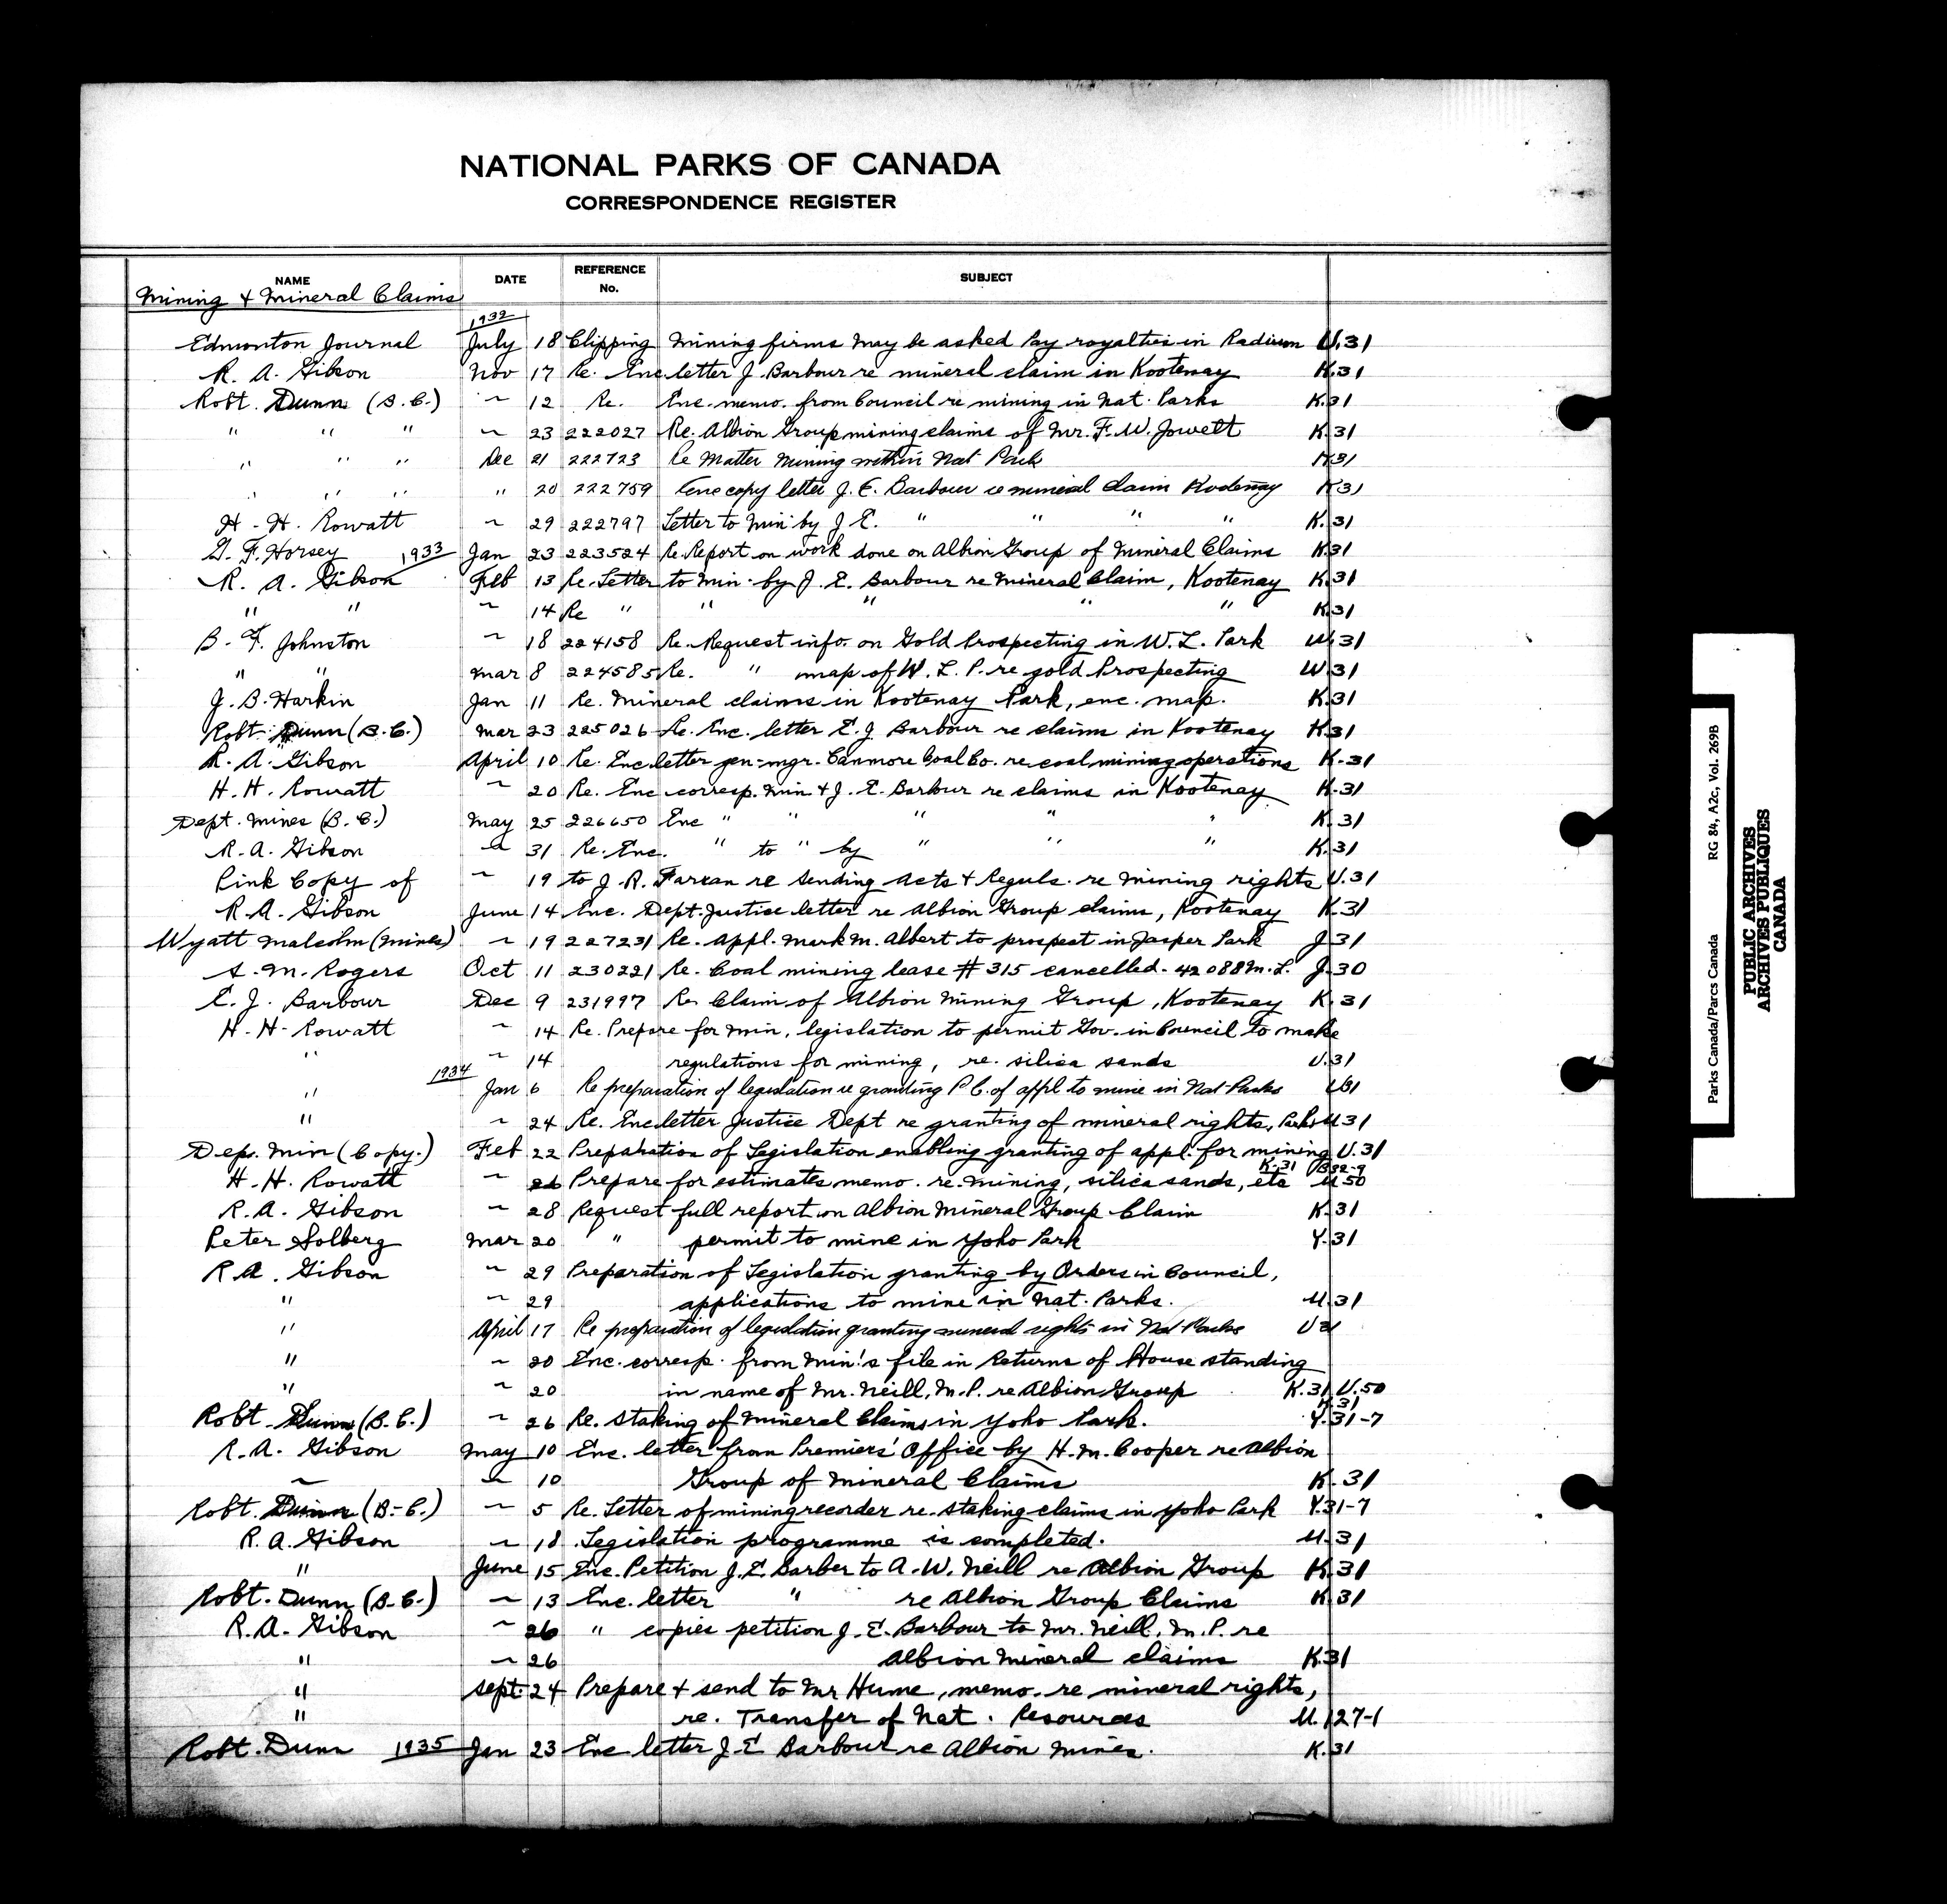 NATIONAL PARKS OF CANADA
CORRESPONDENCE REGISTER
NAME DATE REFERENCE No. SUBJECT
Mining & Mineral Claims
1932
Edmonton Journal July 18 Clipping Mining firms may be asked Pay royalties in Radium U.31
R. A. Gibson Nov 17 Re. Enc letter J. Barbour re mineral claim in Kootenay K.31
Robt. Dunn (B.C.) ~ 12 Re. Enc. memo. from Council re mining in Nat. Parks K.31
" " " ~ 23 222027 Re. Albion Group mining claims of Mr. F. W. Jowett K.31
" " " Dec 21 222723 Re Matter Mining within Nat Park K31
" " " " 20 222759 Enc copy letter J. E. Barbour re mineral claim Kootenay K31
H. H. Rowatt ~ 29 222797 Letter to Min by J. E. " " " " K.31
G. F. Horsey 1933 Jan 23 223524 Re. Report on work done on Albion Group of Mineral Claims K31
R. A. Gibson Feb 13 Re. Letter to Min. by J. E. Barbour re Mineral Claim, Kootenay K.31
" " ~ 14 Re " " " " " K.31
B. F. Johnston ~ 18 224158 Re. Request info. on Gold Prospecting in W. L. Park W.31
" " Mar 8 224585 Re. " map of W. L. P. re gold Prospecting W.31
J. B. Harkin Jan 11 Re. Mineral claims in Kootenay Park, enc. map. K.31
Robt. Dunn (B.C.) Mar 23 225026 Re. Enc. letter E. J. Barbour re claim in Kootenay K31
R. A. Gibson April 10 Re. Enc. letter gen-mgr. Canmore Coal Co. re coal mining operations K-31
H. H. Rowatt ~ 20 Re. Enc corresp. Min & J. E. Barbour re claims in Kootenay K.31
Dept. Mines (B.C.) May 25 226650 Enc " " " " " K.31
R. A. Gibson ~ 31 Re. Enc. " to " by " " " K.31
Pink Copy of ~ 19 to J. R. Farran re sending Acts & Reguls. re Mining rights U.31
R. A. Gibson June 14 Enc. Dept. Justice letter re Albion Group claims, Kootenay K.31
Wyatt Malcolm (Mines) ~ 19 227231 Re. Appl. Mark M. Albert to prospect in Jasper Park J.31
S. M. Rogers Oct 11 230221 Re. Coal mining lease # 315 cancelled. 42088 M.L. J.30
E. J. Barbour Dec 9 231997 Re. Claim of Albion Mining Group, Kootenay K.31
H. H. Rowatt ~ 14 Re. Prepare for Min. legislation to permit Gov. in Council to make
" ~ 14 regulations for mining, re. silica sands U.31
1934
" Jan 6 Re preparation of legislation re granting P C. of appl. to mine in Nat Parks U31
" ~ 24 Re. Enc letter Justice Dept re granting of mineral rights, Parks U31
Dep. Min (Copy.) Feb 22 Preparation of Legislation enabling granting of appl. for mining U.31
K.31
H. H. Rowatt ~ 26 Prepare for estimates memo. re mining, silica sands, etc U.50
R. A. Gibson ~ 28 Request full report on Albion Mineral Group Claim K.31
Peter Solberg Mar 20 " permit to mine in Yoho Park Y.31
R. A. Gibson ~ 29 Preparation of Legislation granting by Orders in Council,
" ~ 29 applications to mine in Nat. Parks. U.31
" April 17 Re preparation of legislation granting mineral rights in Nat Parks U31
" ~ 20 Enc. corresp. from Min's file in Returns of House standing
" ~ 20 in name of Mr. Neill, M.P. re Albion Group K.31, U.50
K.31
Robt. Dunn (B.C.) ~ 26 Re. staking of Mineral Claims in Yoho Park. Y.31-7
R. A. Gibson May 10 Enc. letter from Premiers' Office by H. M. Cooper re Albion
~ ~ 10 Group of Mineral Claims K.31
Robt. Dunn (B.C.) ~ 5 Re. Letter of mining recorder re. staking claims in Yoho Park Y.31-7
R. A. Gibson ~ 18 Legislation programme is completed. U.31
" June 15 Enc. Petition J. E. Barber to A. W. Neill re Albion Group K.31
Robt. Dunn (B.C.) ~ 13 Enc. letter " re Albion Group Claims K.31
R. A. Gibson ~ 26 " copies petition J. E. Barbour to Mr. Neill, M.P. re
" ~ 26 Albion Mineral claims K.31
" Sept. 24 Prepare & send to Mr Hume, memo. re mineral rights,
" re. Transfer of Nat. Resources U.127-1
Robt. Dunn 1935 Jan 23 Enc letter J. E Barbour re Albion Mines. K.31
Parks Canada/Parcs Canada RG 84, A2c, Vol. 269B
PUBLIC ARCHIVES
ARCHIVES PUBLIQUES
CANADA